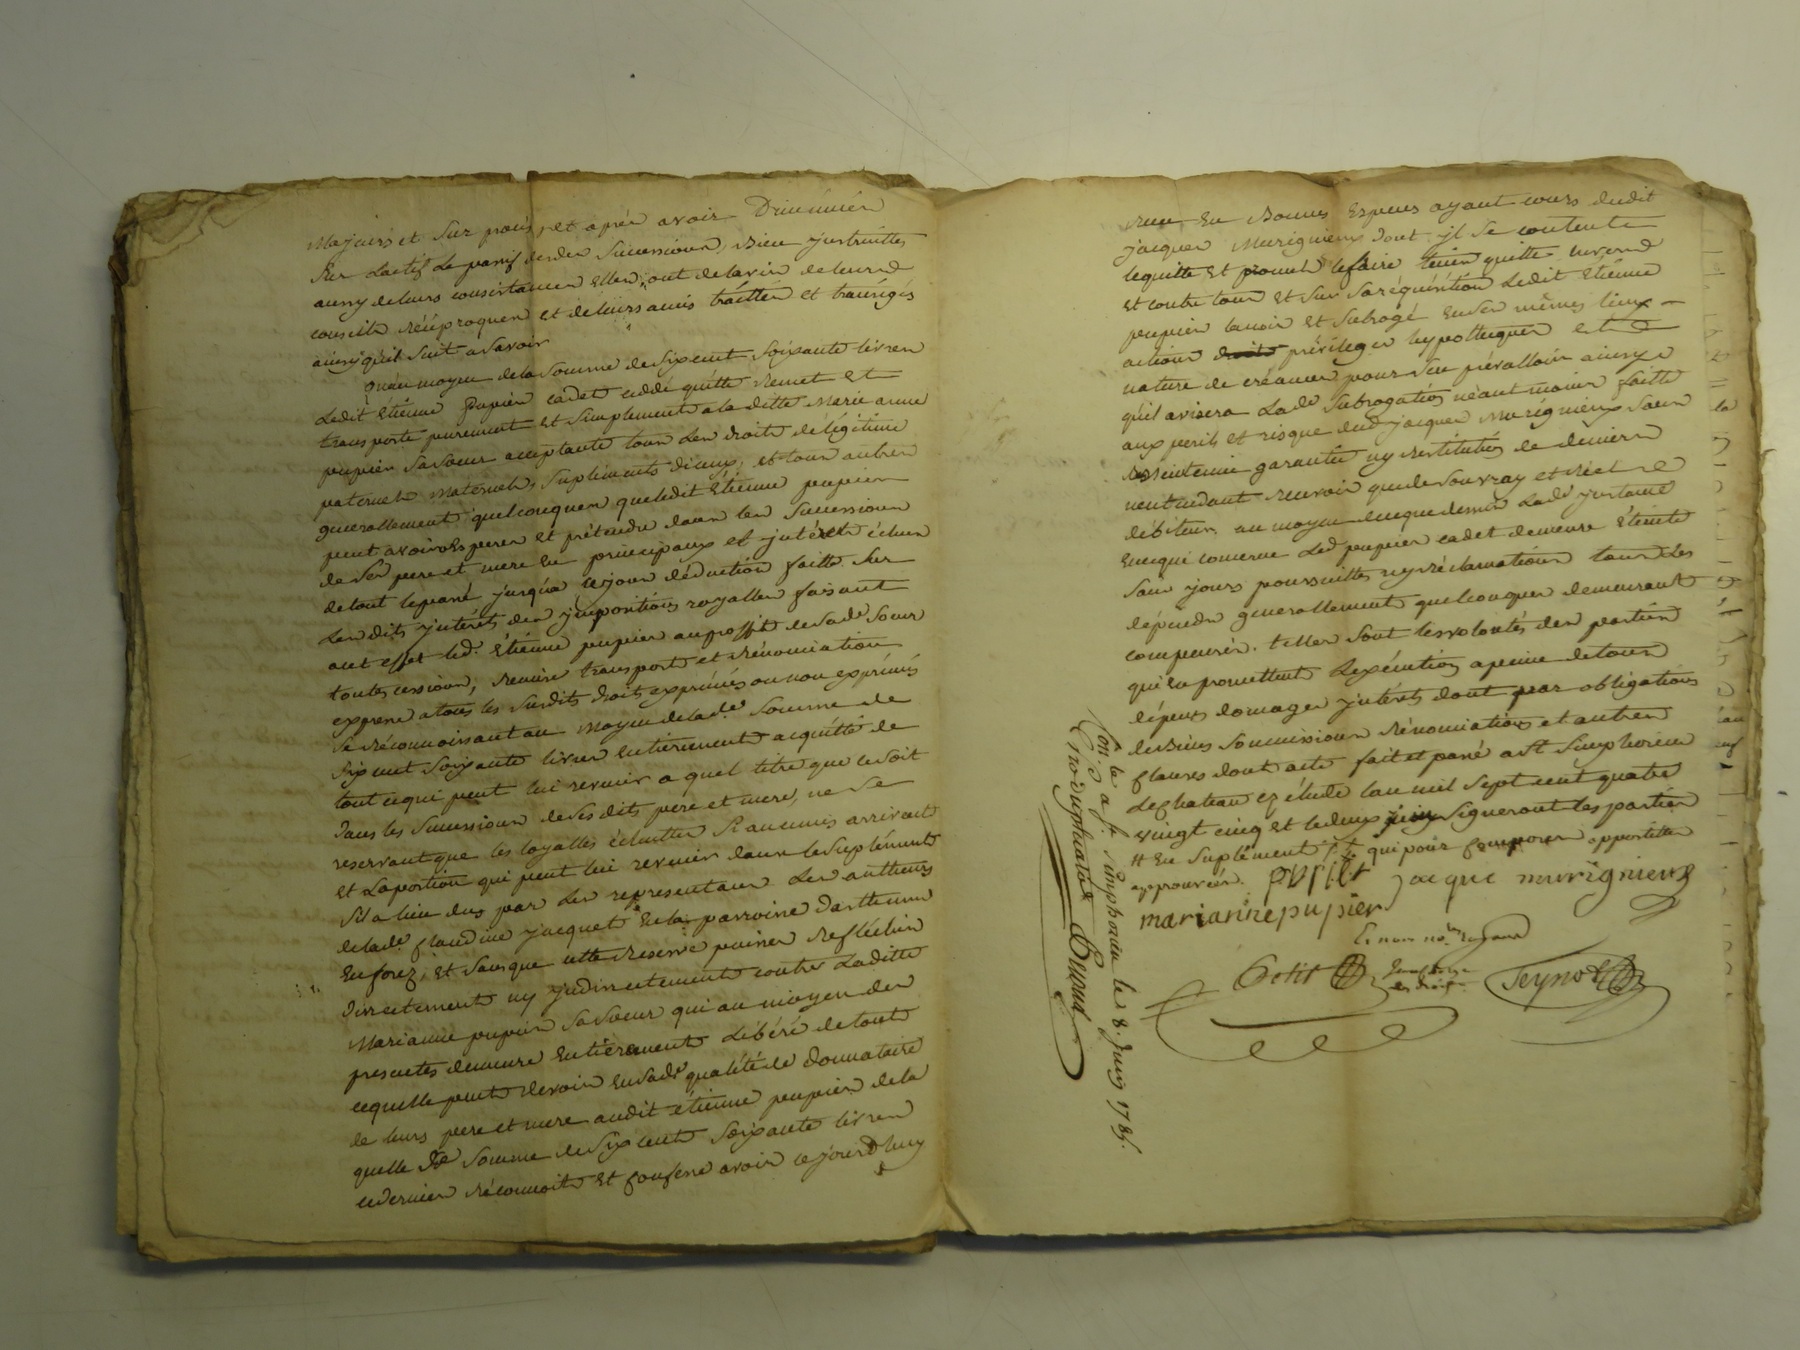 Majeurs et sur procès, et après avoir Diviniser
Sur Lactif Le passif desden Successions, Bien justruittes
aussy de leurs consistances Elles ont de lavis de leurs
conseils réciproques et de leurs amis traittés et transigés
ainsy quil suit a Savoir
Quau moyen de la Somme de Six cent Soixante livres
Ledit Etienne Pupier cadet cedde quitte Remet et
transporte purement et Simplement a la ditte Marie anne
pupier Sa Soeur acceptante tous Les droits de légitime
paternels Maternels, Supléments diceux, et tous autres
generallement quelconques que ledit Etienne pupier
peut avoir Esperer et prétendre dans les Successions
de Ses pere et mere En principaux et jntérets échus
de tout le passé jusqua ce jour déduction faitte Sur
Les dits jntérets des jmpositions royalles faisant
a cet effet led. Etienne pupier au proffit de Sade Soeur
toutes cessions, Remise transports et Rénonciation
expresse a tous les Susdits droits exprimés ou non exprimés
Se réconnoissant au Moyen de lade Somme de
Six cent Soixante livres Entierement acquitté de
tout ce qui peut lui revenir a quel titre que ce Soit
dans les Successions de Sesdits pere et mere, ne Se
reservant que les loyalles échuttes Si aucunes arrivent
et La portion qui peut lui revenir dans le Suplément
Sil a lieu dus par Les representans Les autheurs
de lade Claudine jacquet De la parroisse Darthun
En forez, et Sans que cette Reserve puisse Refléchir
Directement ny jndirectement contre Laditte
Marianne pupier Sa Soeur qui au moyen des
presentes demeure Entièrement Libéré de tout
ce quelle peut devoir En Sade qualité de donnataire
de leurs pere et mere audit étienne pupier de la
quelle de Somme de Six cent Soixante livres
ce dernier réconnoit Et Confesse avoir ce jourdhuy
Reçu En Bonnes Especes ayant cours dudit
jacques Murigneux dont il Se contente
le quitte Et promet le faire tenir quitte Envers
Et contre tous Et Sur Sa réquisition Ledit Etienne
pupier la mis Et Subrogé En Ses mêmes lieux
actions droits priviléges hypotheques et
nature de créances pour Sen prévalloir ainsy
quil avisera Lade Subrogation néant moins faitte
aux perils et risque dud jacques Murigneux Sans
garantie ny Restitution de deniers
nentendant recevoir que de Son vray et réel
débiteur. au moyen de ce que dessus Lade jnstance
En ce qui concerne Led pupier cadet demeure éteinte
Sans jours poursuittes ny réclamations tous Les
dépends generallement quelconques demeurant
compensés. telles Sont les volontés des parties
qui En promettent Lexécution a peine de tous
dépens domages jntérets dont par obligations
de Biens Soumissions Rénonciations et autres
Clauses dont acte fait et passé a St Simphorien
Le Chateau ez étude lan mil Sept cent quatre
vingt cinq et le deux juin Signeront les parties
# En Suplément # qui pour Composer appostille
approuvés. pupier jacque murigneux
marianne pupier
Petit Teynod
Con.lé a St Simphorien le 8. Juin 1785.